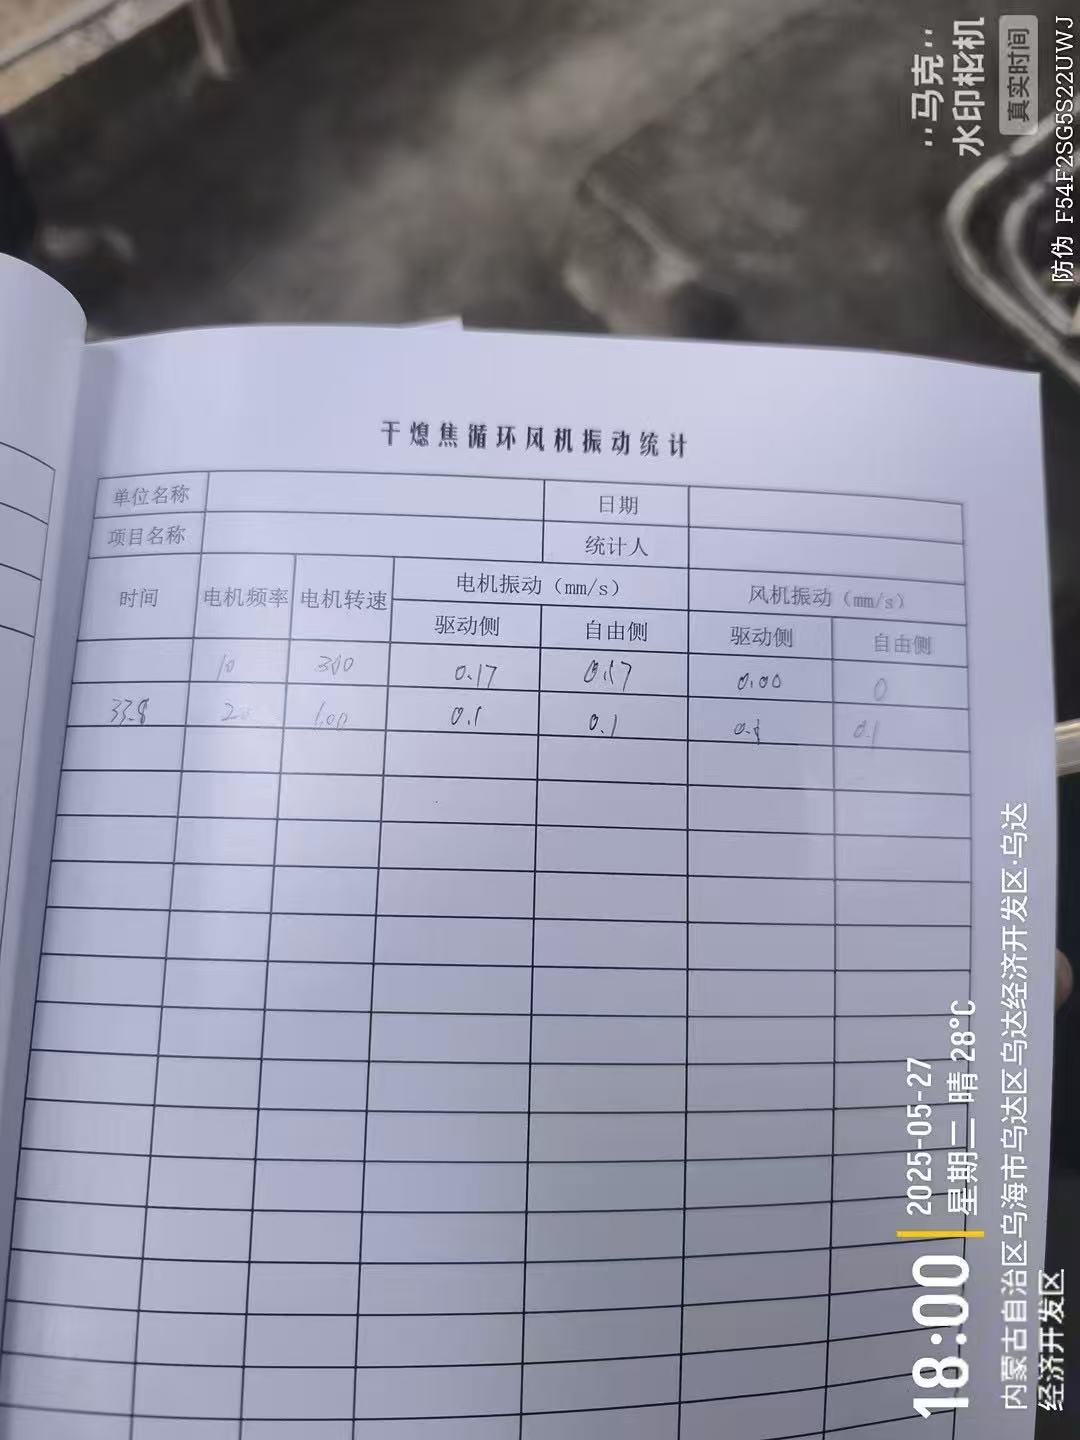 干熄焦循环风机振动统计
单位名称 日期
项目名称 统计人
时间 电机频率 电机转速 电机振动（mm/s） 风机振动（mm/s）
驱动侧 自由侧 驱动侧 自由侧
10 300 0.17 0.17 0.00 0
33.8 20 0.1 0.1 0.1
马克
水印相机
真实时间
防伪 F54F2SG5S22UWJ
18:00
2025-05-27
星期二 晴 28°C
内蒙古自治区乌海市乌达区乌达经济开发区·乌达
经济开发区